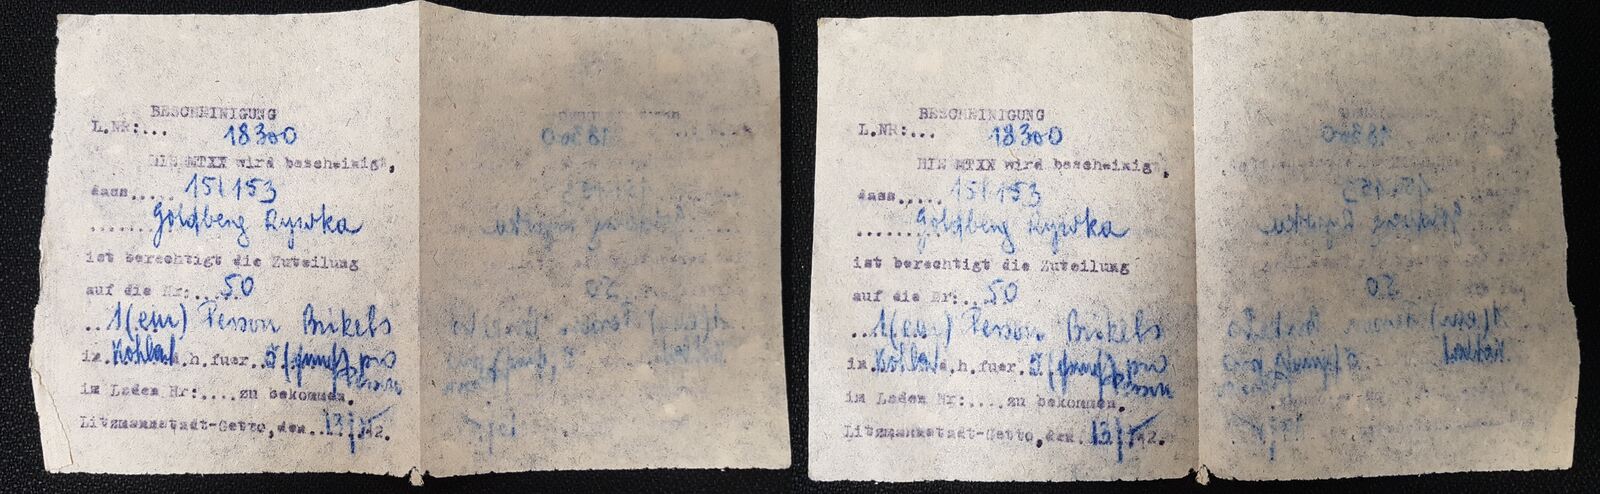 BESCHEINIGUNG
L.NR:... 18300
wird bescheinigt,
dass..... 151153
.......Goldberg Rywka
ist berechtigt die Zuteilung
auf die Nr:.. 50
..1(ein) Person Brikets
i..Kohla. .h.fuer. 5 (fünf) pro
Person
im Laden Nr:....zu bekommen.
Litzmannstadt-Getto,den..13/ 42.
BESCHEINIGUNG
L.NR:... 18300
wird bescheinigt,
dass..... 151153
.......Goldberg Rywka
ist berechtigt die Zuteilung
auf die Nr:.. 50
...1(ein) Person Brikets
i..Kohla. .h.fuer. 5 (fünf) pro
Person
im Laden Nr:....zu bekommen.
Litzmannstadt-Getto,den. 13/ 42.